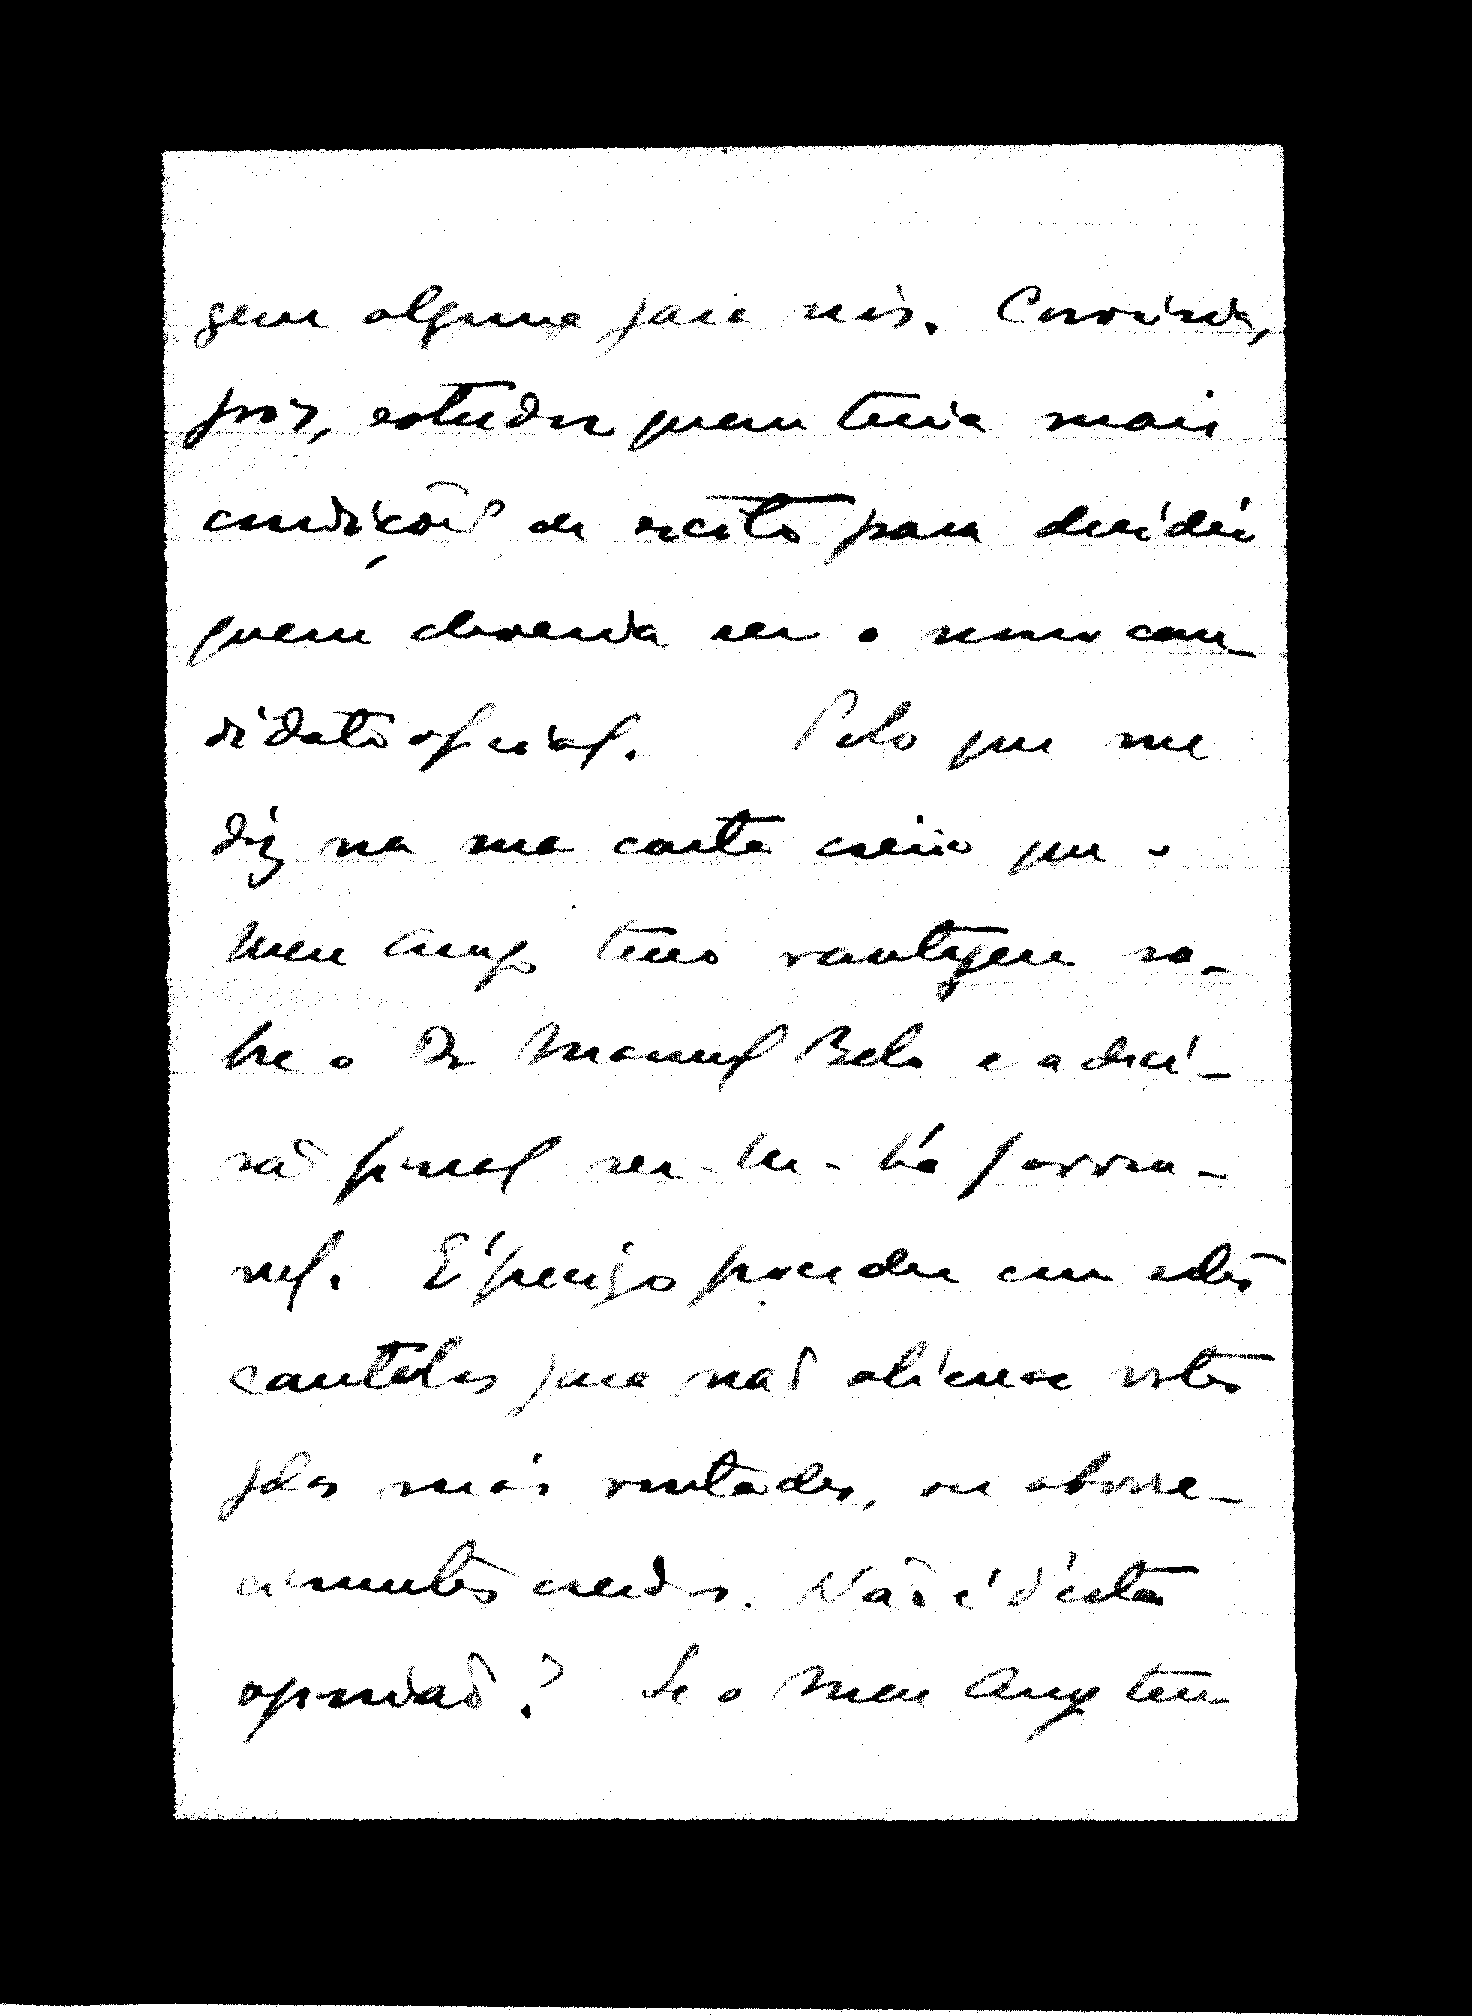 gem alguma para nós. Convinha,
pois, estudar quem teria mais
condições de exito para decidir
quem deveria ser o nosso can-
didato oficial. Pelo que me
diz na sua carta creio que o
meu amigo tem vantagem so-
bre o Dr Manuel Belo e a deci-
são final ser-lhe-há favora-
vel. É preciso proceder com estas
cautelas para não alienar votos
pelas más vontades, ou aborre-
cimentos creados. Não é d'esta
opinião? Se o meu Amigo tem